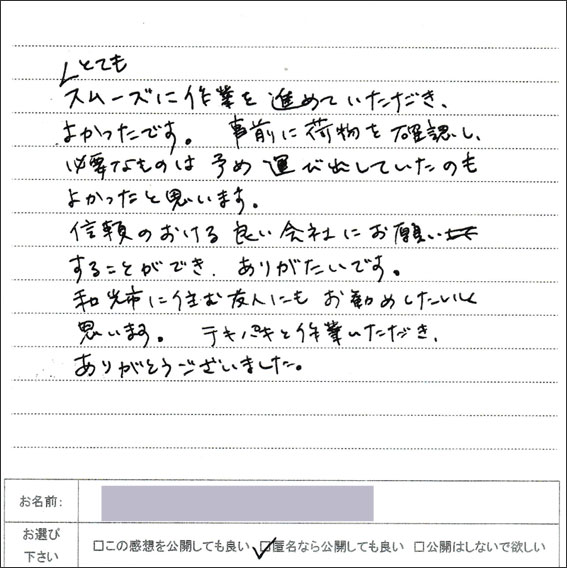 とても
スムーズに作業を進めていただき、
よかったです。 事前に荷物を確認し、
必要なものは予め運び出していたのも
よかったと思います。
信頼のおける良い会社にお願い
することができ、ありがたいです。
和光市に住む友人にもお勧めしたいと
思います。 テキパキと作業いただき、
ありがとうございました。
お名前:
お選び
下さい
□この感想を公開しても良い □匿名なら公開しても良い □公開はしないで欲しい